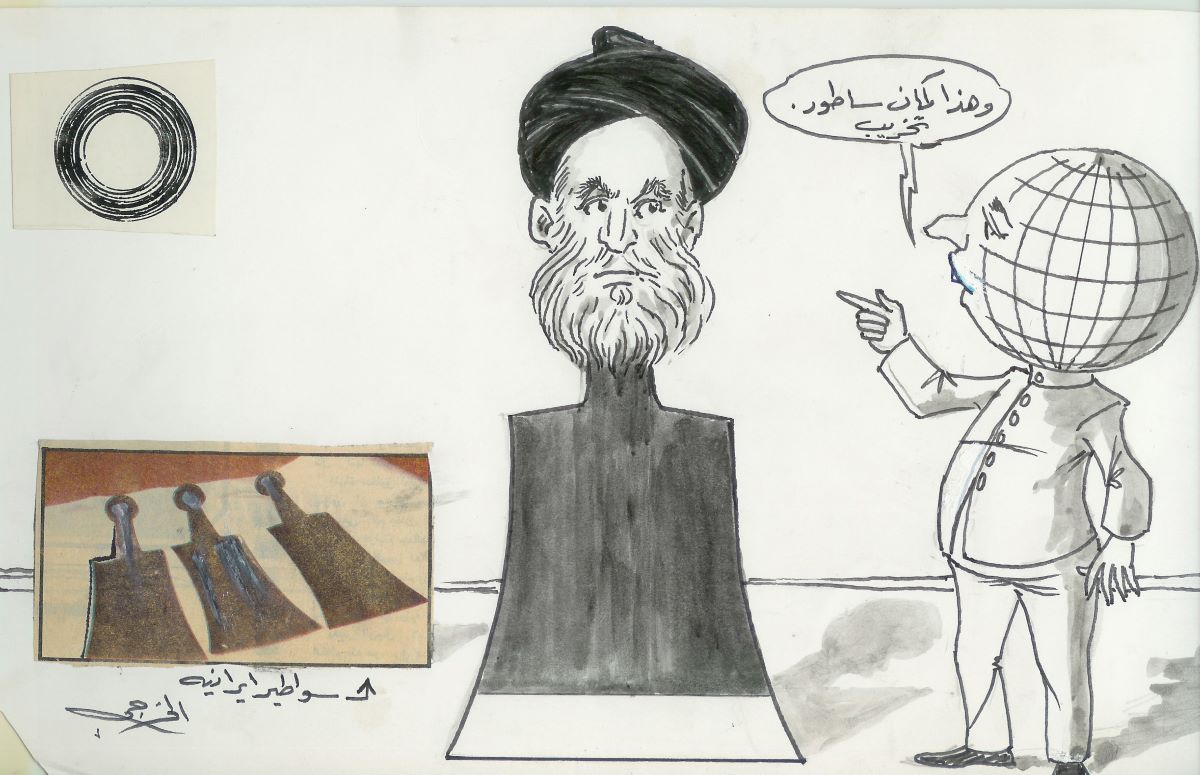 وهذا كمان ساطور.
تخريب
سواطير ايرانيه
الخرجي